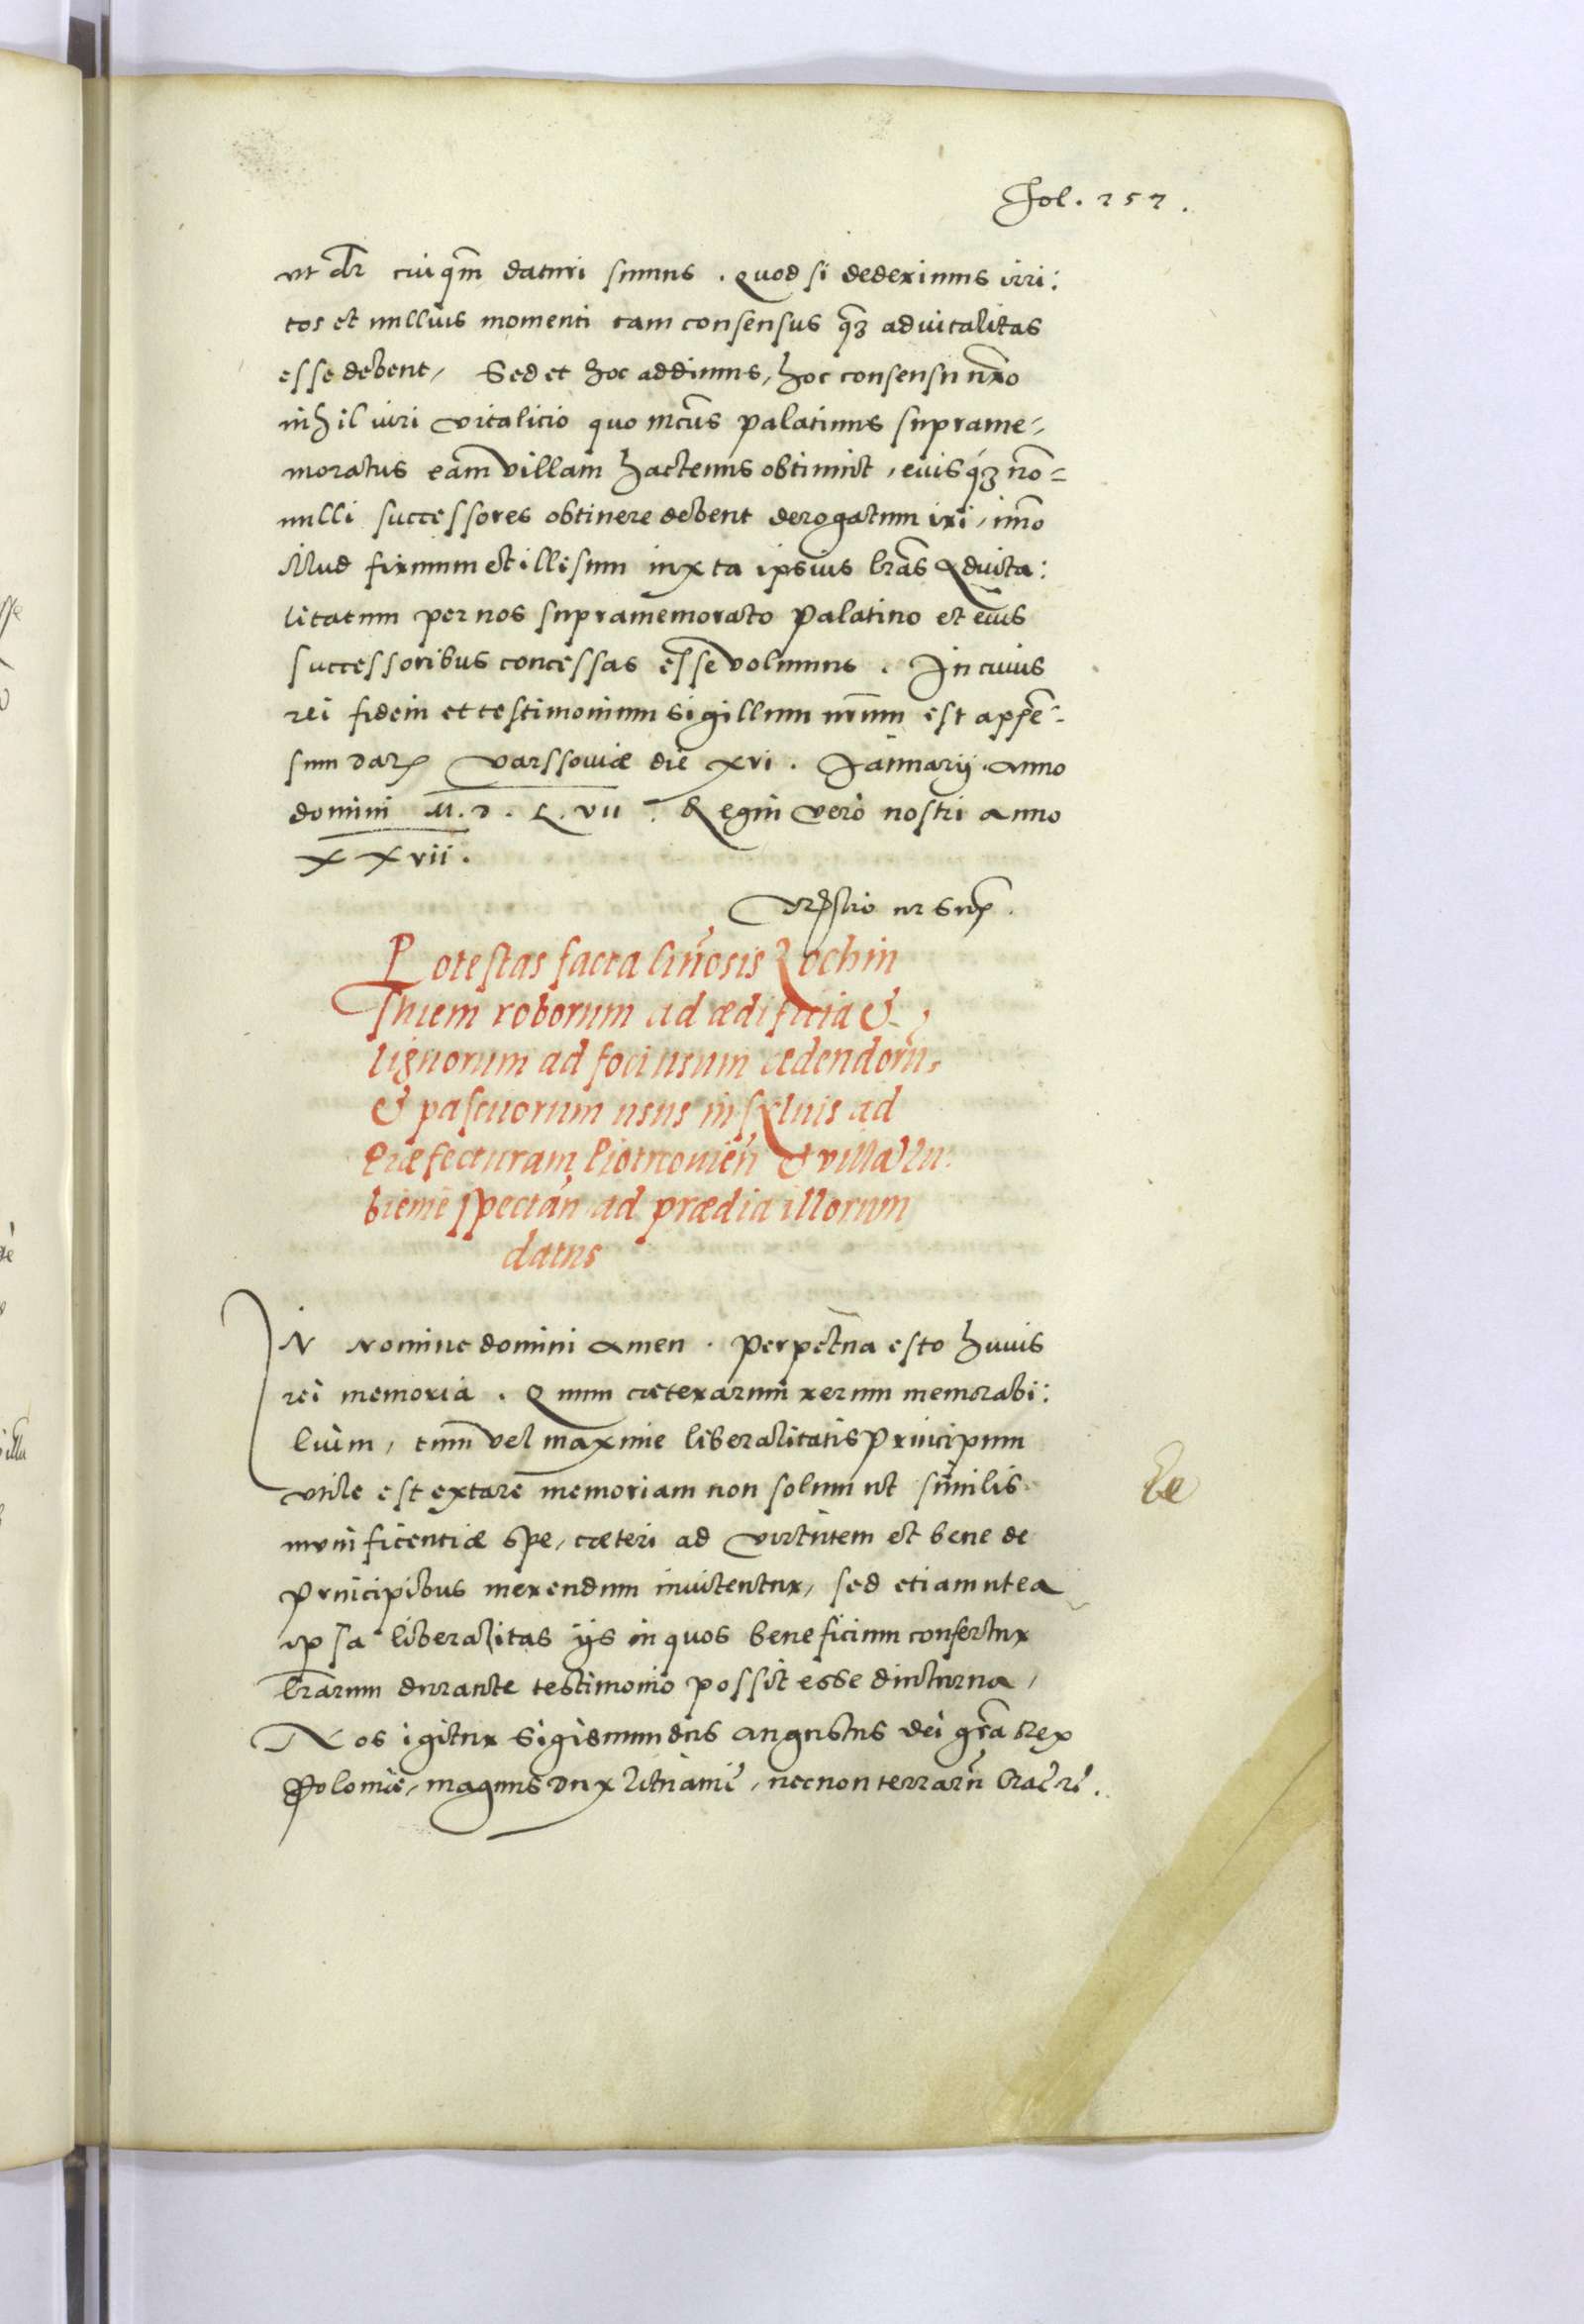 Fol. 257.
ut dr̄ cuiq̃m daturi sumus. Quod si dederimus irri:
tos et nullius momenti tam consensus q̃z aduitalitas
esse debent, Sed et hoc addimus, hoc consensu nr̃o
nihil iuri vitalicio quo mcũs palatinus suprame-
moratus eam villam hactenus obtinuit, eiusq́z nõ=
nulli successores obtinere debent derogatum iri, imõ
illud firmum et illesum iuxta ipsius lr̃as Aduita:
litatum per nos supramemorato palatino et eius
successoribus concessas esse volumus. In cuius
rei fidem et testimonium sigillum nr̃um est appẽ-
sum Dat. Varssouiæ die xvi. Januarij. Anno
domini M. D. L. vii. Regni vero nostri anno
XXvii.
Potestas facta
roborum ad ædificia &
lignorum ad foci usum cædendorũ,
& pascuorum usus in syluis ad
Præfecturam Piotrcouień & villã Lu:
bienie spectań ad prædia illorum
datus
IN Nomine domini Amen. Perpetua esto huius
rei memoria. Quum cæterarum rerum memorabi:
lium, tum vel maxime liberalitatis Principum
vtile est extare memoriam non solum ut similis
munificentiæ spe, cæteri ad virtutem et bene de
Principibus merendum inuitentur, sed etiam ut ea
ipsa liberalitas ijs in quos beneficium confertur
lr̃arum durante testimonio possit esse diuturna,
Nos igitur Sigismundus Augustus dei gr̃a Rex
Poloniæ, magnus Dux Lituaniẽ, necnon terrarũ